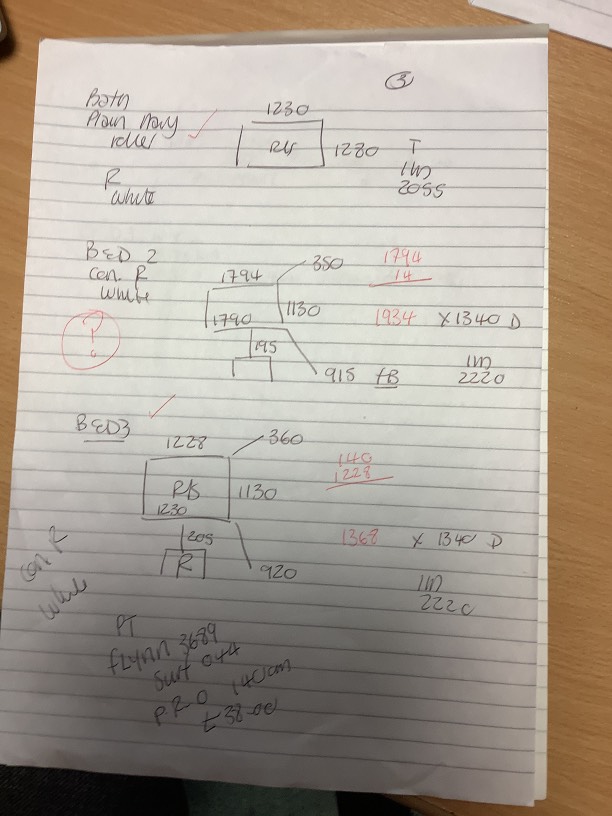 3
Bath
Plain Navy
roller
1230
1280
T
1m
2055
R
white
BED 2
Con. R
white
1794
350
1794
14
1790
1130
1934 X 1340 D
?
195
915 tB
1m
2220
BED3
1228
360
140
1228
R/S
1230
1130
205
1368 X 1340 D
R
920
1m
2220
Con R
white
PT
FLYNN 3689
Surf 044
P R O 140cm
£38-00